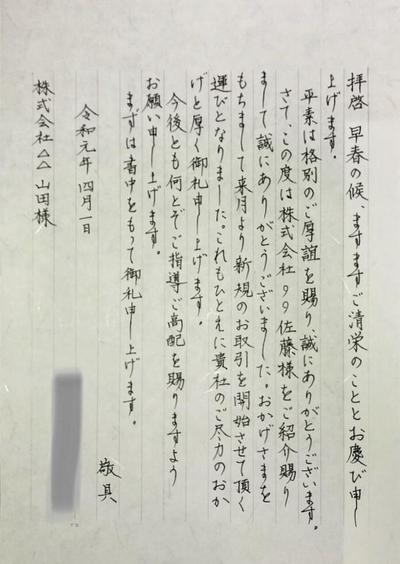 拝啓 早春の候、ますますご清栄のこととお慶び申し
上げます。
平素は格別のご厚誼を賜り、誠にありがとうございます。
さて、この度は株式会社99佐藤様をご紹介賜り
まして誠にありがとうございました。おかげさまを
もちまして来月より新規のお取引を開始させて頂く
運びとなりました。これもひとえに貴社のご尽力のおか
げと厚く御礼申し上げます。
今後とも何とぞご指導ご高配を賜りますよう
お願い申し上げます。
まずは書中をもって御礼申し上げます。
敬具
令和元年四月一日
株式会社△△ 山田様